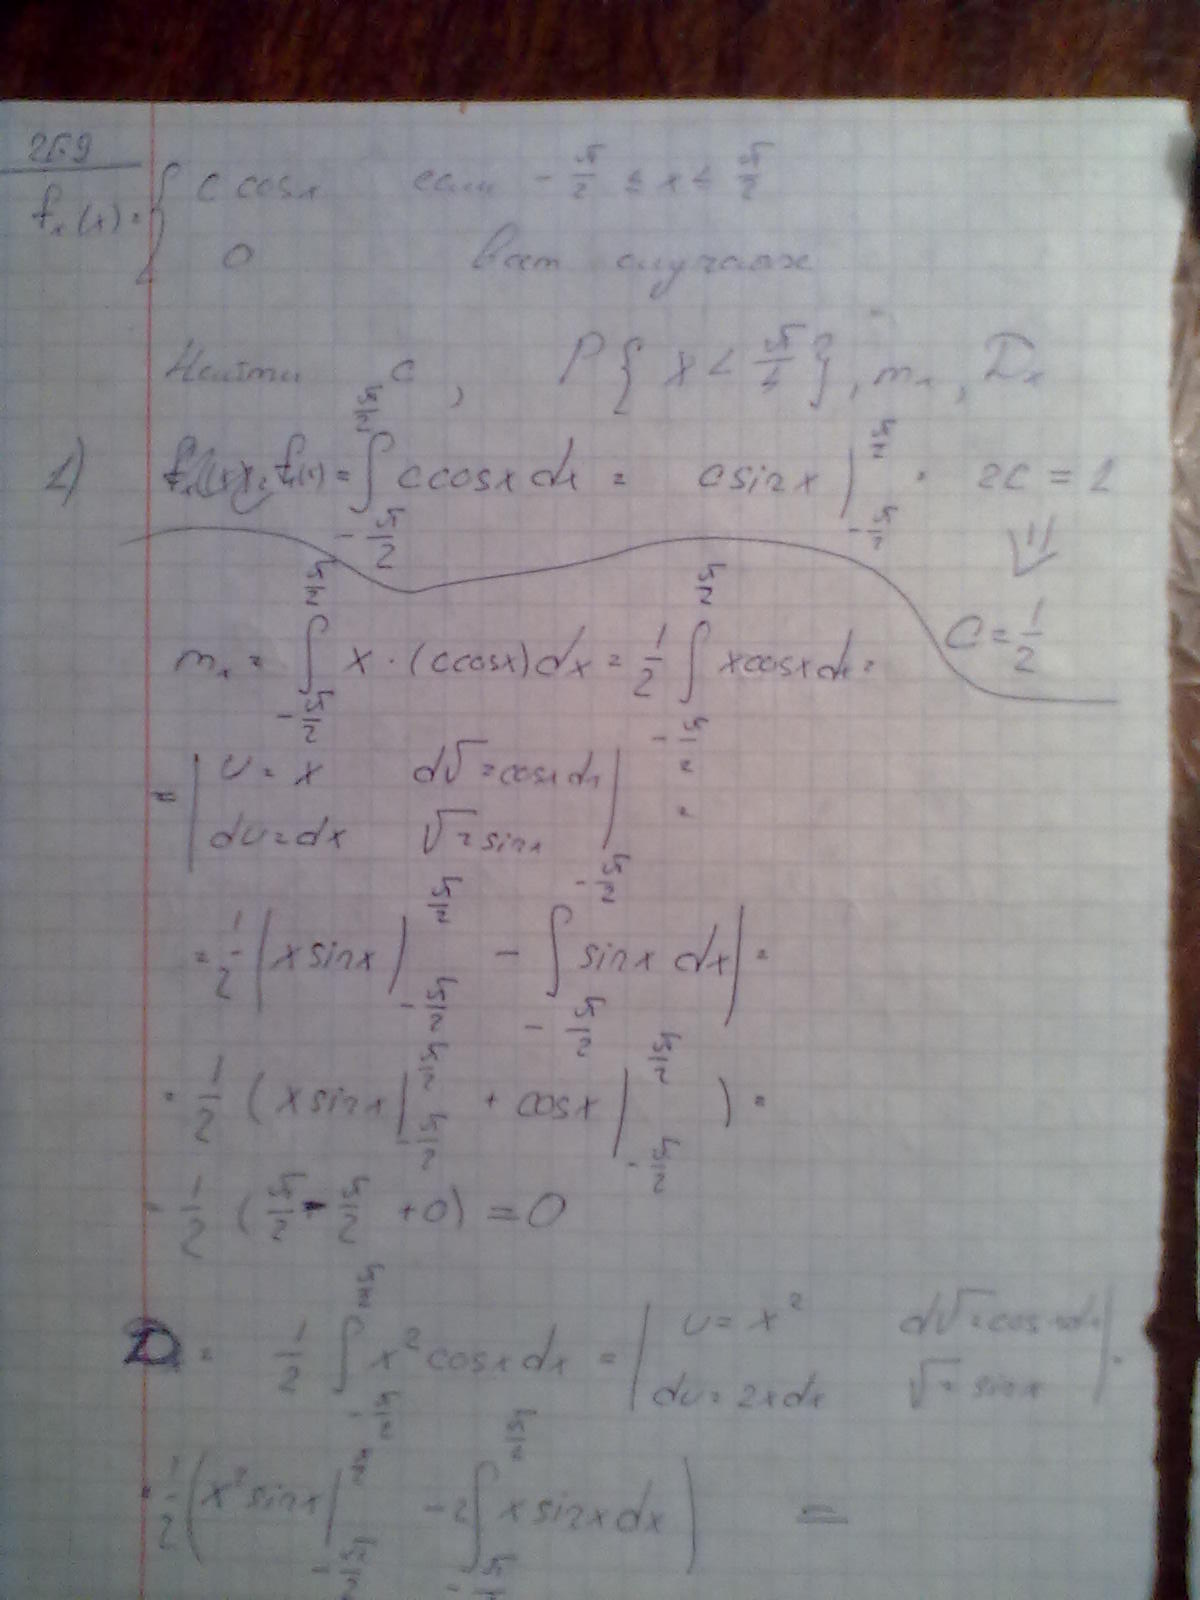 25.9
fₓ(x) = { c cosx если -π/2 ≤ x ≤ π/2
0 в ост случаях
Найти c, P{x < π/4}, mₓ, Dₓ
1) = ∫_{-π/2}^{π/2} c cosx dx = c sinx |_{-π/2}^{π/2} = 2c = 1
⇓
C = 1/2
mₓ = ∫_{-π/2}^{π/2} x · (c cosx) dx = 1/2 ∫_{-π/2}^{π/2} x cosx dx =
= | u = x dv = cosx dx |
| du = dx v = sinx | =
= 1/2 | x sinx |_{-π/2}^{π/2} - ∫_{-π/2}^{-π/2} sinx dx | =
= 1/2 ( x sinx |_{-π/2}^{π/2} + cosx |_{-π/2}^{π/2} ) =
= 1/2 ( π/2 - π/2 + 0) = 0
D = 1/2 ∫_{-π/2}^{π/2} x² cosx dx = | u = x² dv = cosx dx |
| du = 2x dx v = sinx | =
= 1/2 ( x² sinx |_{-π/2}^{π/2} - 2 ∫_{-π/2}^{π/2} x sinx dx ) =